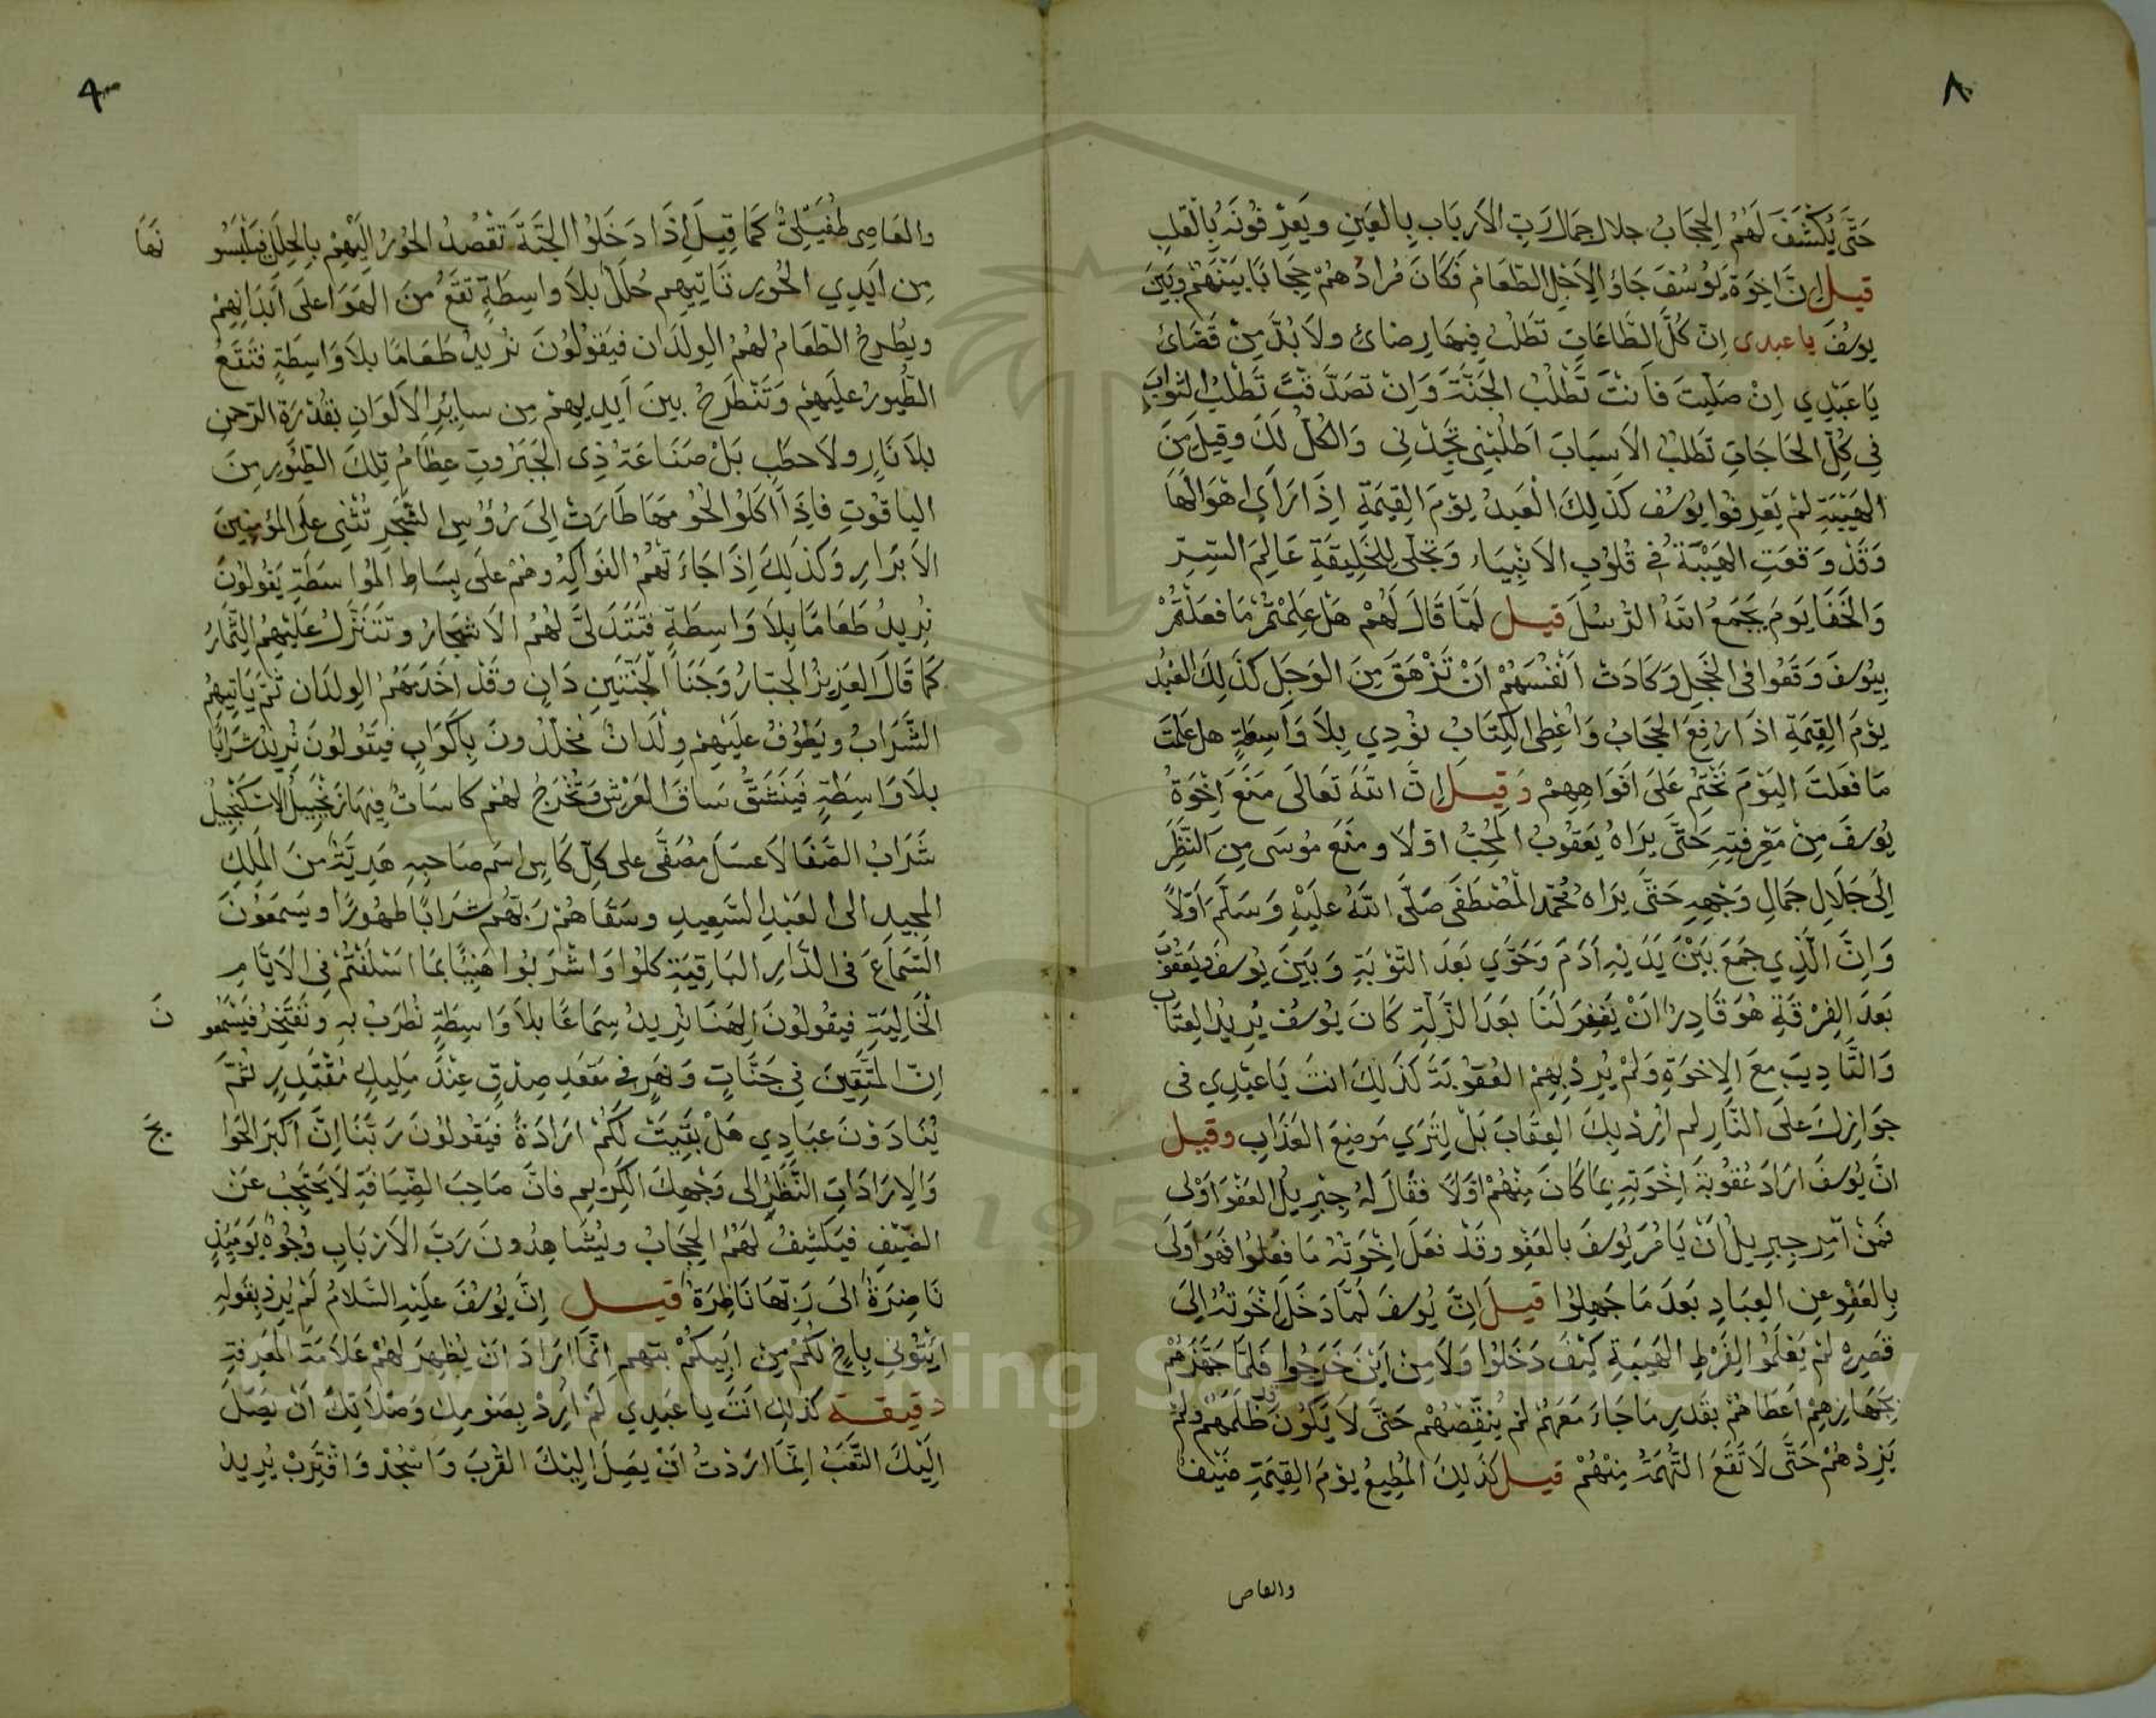 ٨
حَتَّى يُكْشَفَ لَهُمُ الحِجَابُ جلال جمال رَبِّ الأرباب بالعَينِ ويَعرِفُونَهُ بالقَلبِ
قيل إنَّ اخِوَةَ يُوسُفَ جَاؤُا لِاَجْلِ الطَّعَامِ فَكَانَ مُرادُهُمْ حِجَابًا بَيْنَهُمْ وبَيْنَ
يوسُفَ يا عبدى إنّ كُلَّ الطَّاعَاتِ تَطْلُبُ فِيهَا رِضائ ولَا بُدَّ مِنْ قَضَائ
يَا عَبْدِي إنْ صَلَّيتَ فَأَنْتَ تَطْلُبُ الجَنَّةَ وَإنْ تَصَدَّقْتَ تَطْلُبُ الثَوابَ
فِي كُلِّ الحَاجَاتِ تَطلُبُ الاَسبَابَ اُطلُبْنِى تَجِدْنِى وَالكُلُّ لَكَ وقِيلَ مِنَ
الهَيْبَةِ لَمْ يَعْرِفُوا يُوسُف كَذلِكَ الْعَبدُ يَوْمَ القِيٰمَةِ إِذَا رَاَى اهْوَالَهَا
وَقَدْ وَقَعَتِ الهَيْبَةُ فى قُلُوبِ الأنبِيَاء وَتَجَلَّى لِلخَلِيقَةِ عَالِمُ السِّرِّ
وَالخَفَا يَومَ يَجْمَعُ اللهُ الرُّسُلَ قيل لَمَّا قَالَ لَهُمْ هَلْ عَلِمْتُمْ مَا فَعَلْتُمْ
بِيُوسُفَ وَقَعُوا فى الخَجَلِ وَكَادَتْ أنفُسُهُمْ اَنْ تَزْهَقَ مِنَ الوَجَلِ كَذلِكَ العَبْدُ
يَوْمَ القِيٰمَةِ اذَا رُفِعَ الحِجَابُ وَاُعْطِى الكِتَابُ نُوْدِي بِلَا وَاسِطَةٍ هل عَلِمتَ
مَا فَعَلتَ اليَوْمَ نَخْتِمُ عَلَى اَفْوَاهِهِمْ وَقِيلَ إنَّ اللهَ تَعَالَى مَنَعَ إخْوَةَ
يُوسُفَ مِنْ مَعْرِفَتِهِ حَتَّى يَرَاهُ يَعقُوبُ المُحِبُّ اوّلًا ومَنَعَ مُوسَى مِنَ النَّظَرِ
اِلَى جَلَالِ جَمَالِ وَجْهِهِ حَتَّى يَرَاهُ مُحَمّد المُصْطَفَى صَلَّى اللهُ عَلَيْهِ وَسَلَّمَ اَوّلًا
وَإنَّ الَّذِي جَمَعَ بَيْنَ يَدَيْهِ اٰدَمَ وَحَوَّي بَعدَ التَّوْبَةِ وَبَيْنَ يُوسُفَ وَيَعقُوبَ
بَعدَ الفِرْقَةِ هُوَ قَادِرٌ انْ يَغفِرَ لَنَا بَعدَ الزَّلَّةِ كَانَ يُوسُف يُرِيدُ العِتَابَ
وَالتَّادِيبَ مَعَ الإخوَةِ وَلَمْ يُرِدْ بِهِمُ العُقُوبَةَ كَذَلِكَ انتَ يَا عَبْدِي فى
جوازِكَ علَى النَّارِ لم اُرِدْ بِكَ العِقَابَ بَلْ لِتَرَي مَوضِعَ العَذَابِ وقيل
انَّ يُوسُفَ ارَادَ عُقُوبَةَ إخْوَتِهِ بِمَا كَانَ مِنْهُمْ اوَّلًا فقَالَ لَهُ جِبْرِيلُ العَفْوُ اوْلى
فَمَنْ اَمَرَ جبرِيلُ اَنْ يَامُرَ يُوسُفَ بالعَفْوِ وقَدْ فعَلَ إخْوَتُهُ مَا فعَلُوا فهوَ اَولَى
بِالعَفْوِ عنِ العِبَادِ بَعدَ مَا جَهِلُوا قيلَ اِنَّ يُوسُفَ لَمَّا دَخَلَ إخْوَتُهُ اِلَى
قَصرِهِ لَمْ يَعْلَمُوا لِفَرْطِ الهَيبَةِ كَيْفَ دَخَلُوا وَلَا مِنْ اَيْنَ خَرَجُوا فَلَمَّا جَهَّزَهُمْ
بِجَهَازِهِمْ اَعطَاهُمْ بقَدْرِ مَا جَاءَ مَعَهُمْ لَمْ يُنَقِّصْهُمْ حَتَّى لَا يَكُونَ ظَلَمَهُمْ ولَمْ
يَزِدْهُمْ حَتَّى لَا تَقَعَ التُّهمَةُ مِنْهُمْ قيل كَذَلِكَ المُطِيعُ يَوْمَ القِيٰمَةِ ضَيْفٌ
والعاص
٩
والعَاصِى طُفَيْلِىٌّ كَمَا قِيلَ إذَا دَخَلُوا الجَنَّةَ تَقْصُدُ الحُورُ إلَيْهِمْ بِالحِلَلِ فيَلْبَسُو نَهَا
مِن اَيدِي الحُورِ تَاتِيهِم حُلَلٌ بلَا واسِطَةٍ تَقَعُ مِنَ الهَوَا على اَبْدَانِهِمْ
ويُطْرحُ الطّعَامُ لهُمُ الوِلدَان فيَقُولُونَ نُرِيدُ طَعَامًا بلَا وَاسِطَةٍ فتَقَعُ
الطُّيورُ علَيْهِمْ وَتَنْطَرِحُ بينَ اَيدِيهِمْ مِن سايِرِ الاَلوَانِ بقُدْرَةِ الرّحمنِ
بلَا نَارٍ ولَا حطَبٍ بَلْ صَنَاعَةُ ذِى الجَبَرُوتِ عِظَامُ تِلكَ الطُّيُورِ مِنَ
اليَاقُوتِ فاِذَا اَكَلُوا لُحُومَهَا طَارَتْ اِلىَ رُؤُسِ الشَّجَرِ تُثْنِى علَى المُؤمِنِينَ
الأبْرَارِ وَكَذلِكَ اِذَا جَاءَتْهُمُ الفَوَاكِهُ وهُمْ علَى بِسَاطِ المُواسَطَةِ يَقُولُونَ
نُرِيدُ طَعَامًا بِلَا وَاسِطَةٍ فَتَتَدَلَّى لَهُمُ الاَشجَارُ وتَتَنَزَّلُ عَلَيْهِمُ الثِّمَارُ
كَمَا قَالَ العَزِيزُ الجَبّارُ وَجَنَا الجَنَّتَينِ دَانٍ وقَدْ اخَدَمَهُمُ الوِلدَان ثُمَّ يَاتِيهِمُ
الشَّرَابُ ويَطُوفُ علَيْهِمْ وِلْدَانٌ مُخَلَّدُونَ بِاَكوَابٍ فيَقُولُونَ نُرِيدُ شَرَابًا
بلَا وَاسِطَةٍ فيَنشَقُّ سَاقُ العَرْشِ وتَخْرُجُ لهُم كاسَاتٌ فِيهَا زَنجَبِيلٌ لَا سكَنْجَبِيلٌ
شَرَابُ الصَّفَا لَا عسَلٌ مصَفَّى على كلّ كَاسٍ اسم صاحبِهِ هَدِيَّةٌ مِنَ المَلِكِ
المجيدِ الى العَبْدِ السَّعِيدِ وسَقَاهُمْ رَبّهُم شرَابًا طهُورًا ويَسمَعُونَ
السَّمَاعَ فى الدَّارِ البَاقِيَةِ كلُوا وَاشْرَبُوا هَنِيًا بمَا اسْلَفْتُمْ فِى الاَيَّامِ
الْخَالِيَةِ فيَقُولُونَ الهَنَا نُرِيدُ سِمَاعًا بلَا وَاسِطَةٍ نُطْرَبُ بِهِ ونَفْتَخِرُ فيَسْمَعُو نَ
اِنّ المُتَّقِينَ فِى جَنَّاتٍ وَنَهَرٍ فى مَقعَدِ صِدْقٍ عِنْدَ مَلِيكٍ مُقْتَدِرٍ ثُمَّ
يُنَادَوْنَ عِبَادِي هَلْ بَقِيَتْ لَكُمْ ارَادَةٌ فيَقُولُونَ رَبَّنَا إنَّ اَكبَرَ الحَوَا يجَ
وَالإرَادَاتِ النَّظَرُ إلى وَجْهِكَ الكَرِيمِ فإنَّ صَاحِبَ الضِّيَافَةِ لَا يَحْتَجِبُ عَنْ
الضَّيْفِ فيَكشِفُ لَهُمُ الحِجَابُ ويُشَاهِدُونَ رَبَّ الأربَابِ وُجُوهٌ يَومَئِذٍ
نَاضِرَةٌ إلَى رَبِّهَا نَاظِرَةٌ قيل إنَّ يُوسُفَ عَلَيهِ السَّلَامُ لَمْ يُرِدْ بِقَولِهِ
ايْتُونِى بِاَخٍ لَكُمْ مِنْ ابِيكُمْ تهم انّمَا ارَادَ انْ يُظْهِرَ لهُمْ عَلَامَةَ المَعْرِفَةِ
دقيقة كذلِك انَتَ يا عَبْدِي لَمْ ارِدْ بِصَومِكَ وصَلَاتِكَ انْ يَصِلَ
اِلَيْكَ التَّعَبُ اِنّمَا اَرَدْتُ انْ يَصِلَ اِلَيْكَ القُرْبَ وَاسْجُدْ وَاقْتَرِبْ يُرِيدُ
Copyright © King Saud University
1957